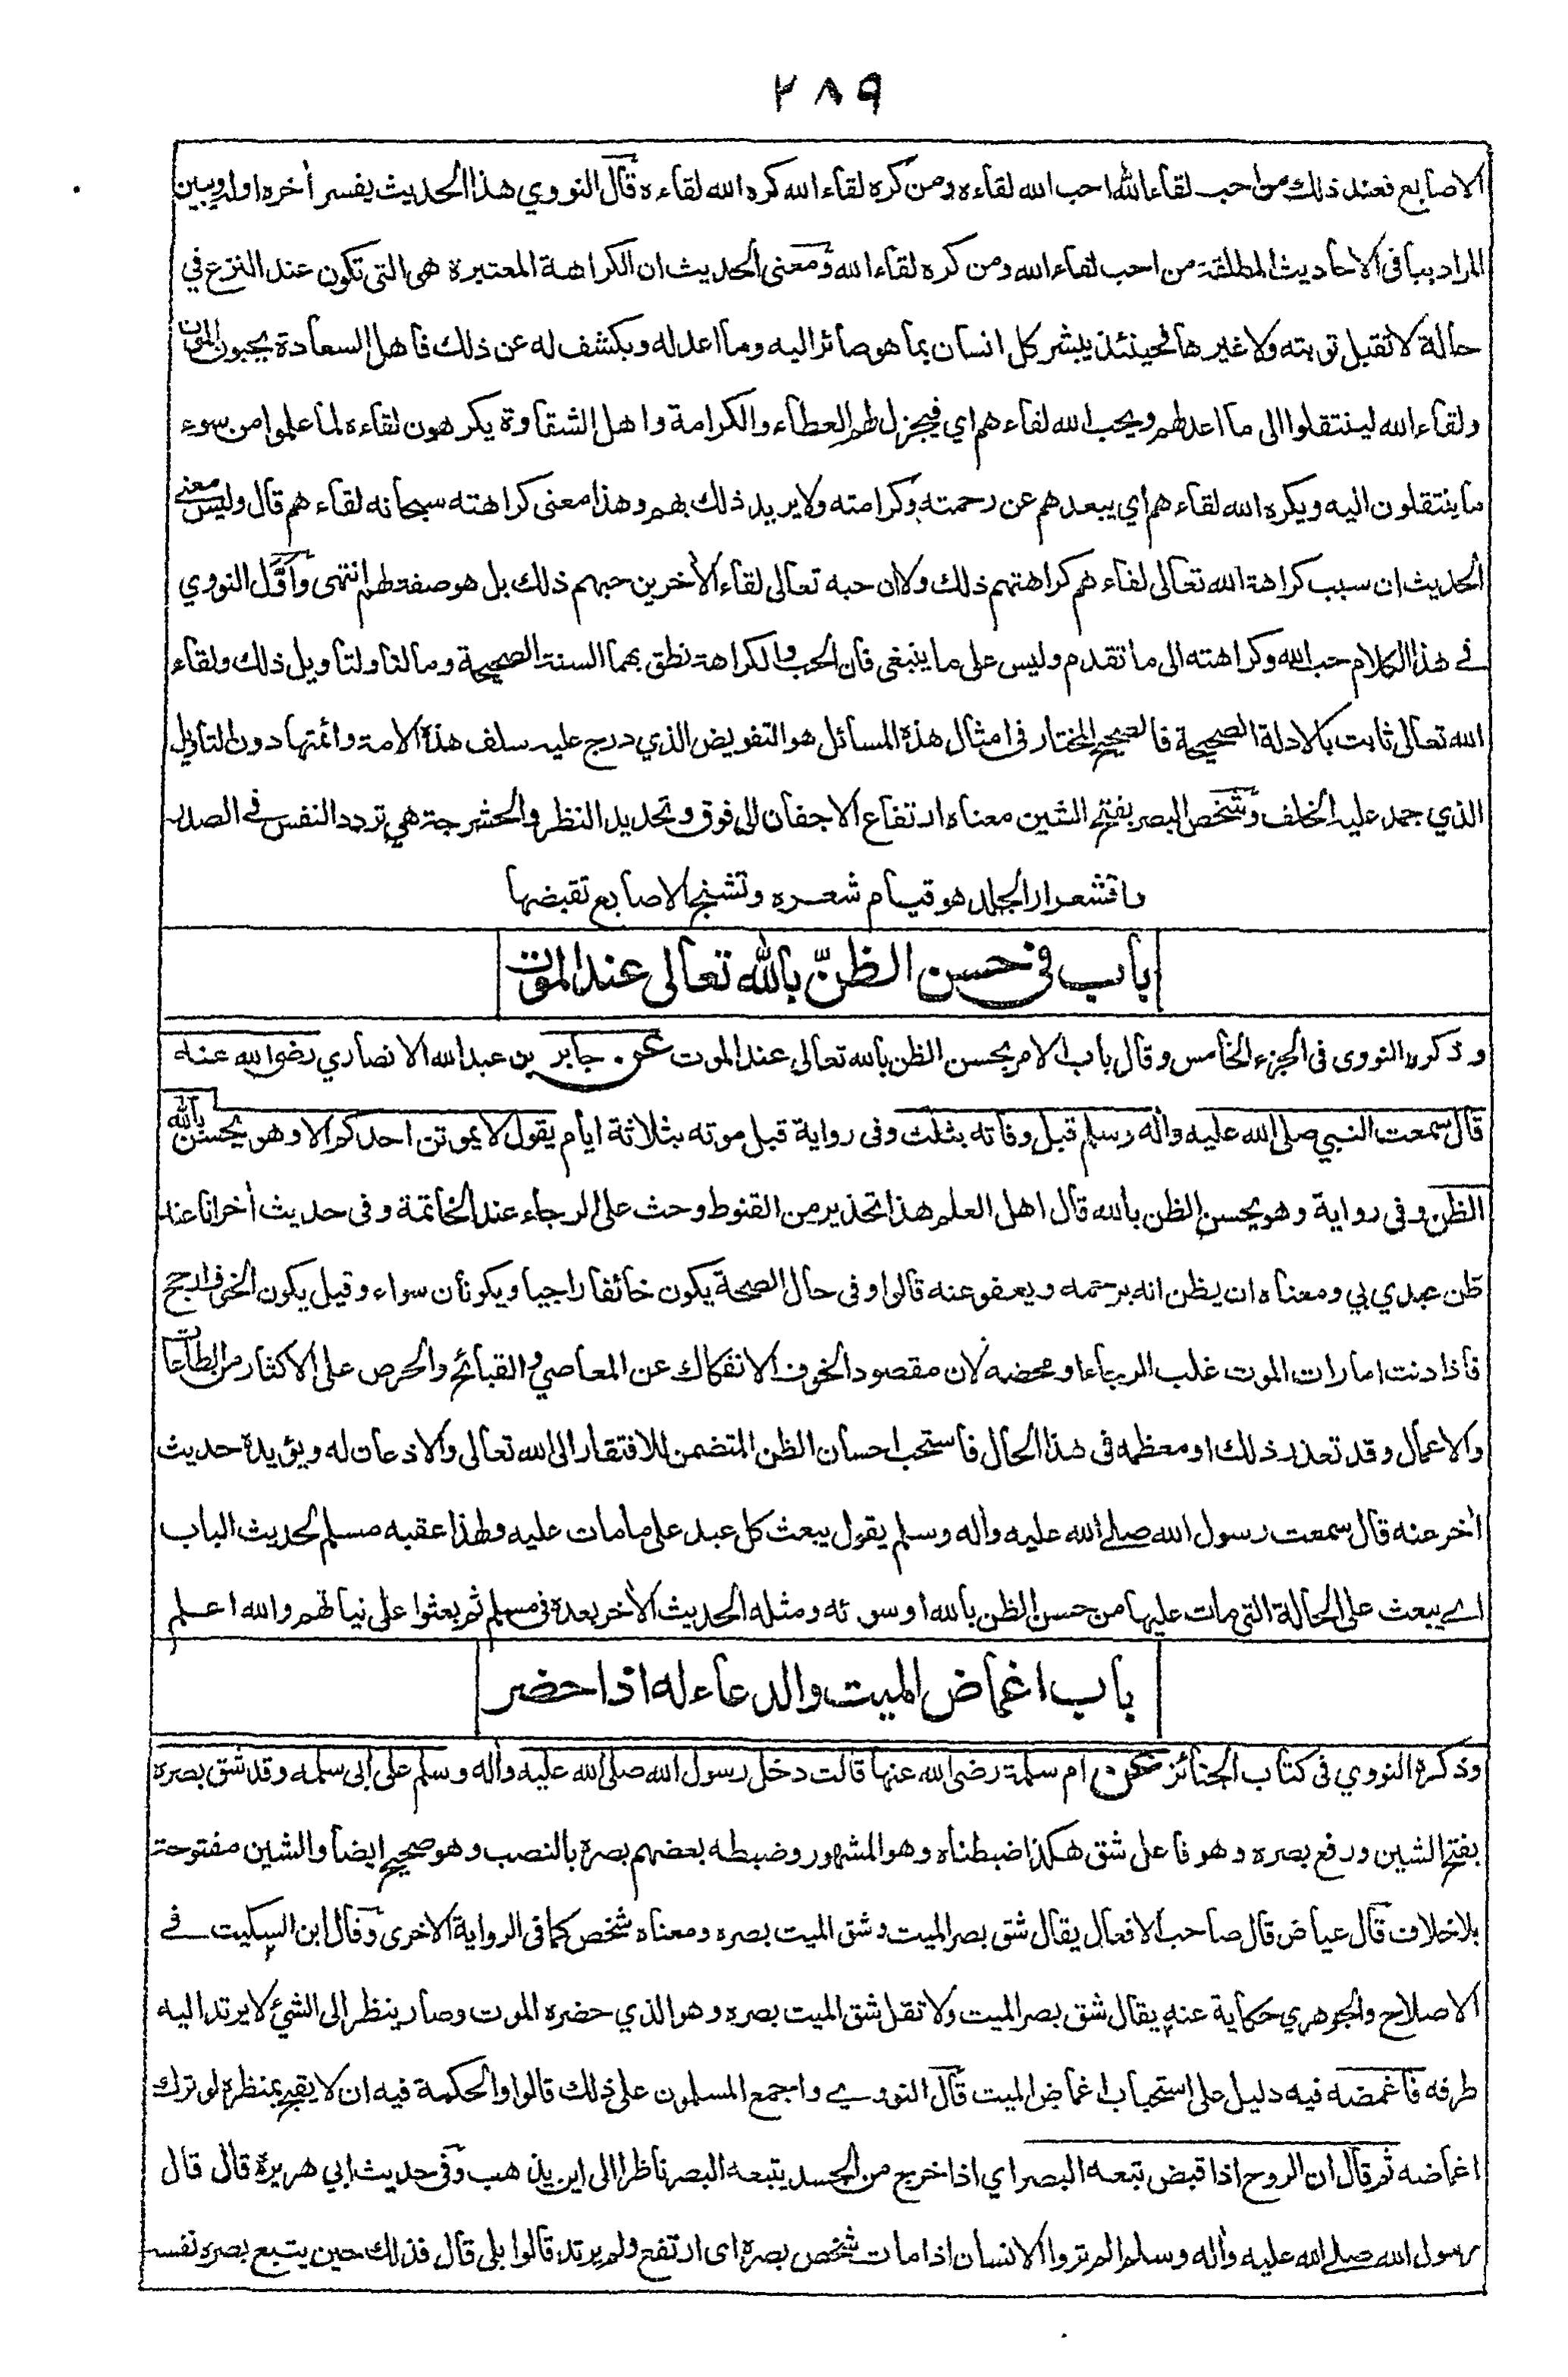 ٢٨٩
الاصابع فعند ذلك من احب لقاء الله احب الله لقاءه ومن كره لقاء الله كره الله لقاءه قال النووي هذا الحديث يفسر أخره اوله ويبين
المراد بباقى الاحاديث المطلقة من احب لقاء الله ومن كره لقاء الله ومعنى الحديث ان الكراهة المعتبرة هى التى تكون عند النزع في
حالة لا تقبل توبته ولا غيرها فحينئذ يبشر كل انسان بما هو صائر اليه وما اعد له ويكشف له عن ذلك فاهل السعادة يحبون الموت
ولقاء الله لينتقلوا الى ما اعد لهم ويحب الله لقاءهم اي فيجزل لهم العطاء والكرامة واهل الشقاوة يكرهون لقاءه لما علموا من سوء
ما ينتقلون اليه ويكره الله لقاءهم اي يبعدهم عن رحمته وكرامته ولا يريد ذلك بهم وهذا معنى كراهته سبحانه لقاءهم قال وليس معنى
الحديث ان سبب كراهة الله تعالى لقاءهم كراهتهم ذلك ولا ان حبه تعالى لقاء الأخرين حبهم ذلك بل هو صفة لهم انتهى واوّل النووي
في هذا الكلام حب الله وكراهته الى ما تقدم وليس على ما ينبغى فان الحب والكراهة نطق بهما السنة الصحيحة وما لنا ولتاويل ذلك ولقاء
الله تعالى ثابت بالادلة الصحيحة فالصحيح المختار فى امثال هذه المسائل هو التفويض الذي درج عليه سلف هذه الامة وائمتها دون التاويل
الذي جمد عليه الخلف وشخص البصر بفتح الشين معناه ارتفاع الاجفان الى فوق وتحديد النظر والحشرجة هي تردد النفس في الصدر
واقشعرار الجلد هو قيام شعره وتشنج الاصابع تقبضها
باب فى حسن الظنّ بالله تعالى عند الموت
وذكره النووى فى الجزء الخامس وقال باب الامر بحسن الظن بالله تعالى عند الموت عن جابر بن عبد الله الانصاري رضي الله عنه
قال سمعت النبي صلى الله عليه وأله وسلم قبل وفاته بثلث وفى رواية قبل موته بثلاثة ايام يقول لا يموتن احدكم الا وهو يحسن بالله
الظن وفى رواية وهو يحسن الظن بالله قال اهل العلم هذا تحذير من القنوط وحث على الرجاء عند الخاتمة وفى حديث أخر انا عند
ظن عبدي بي ومعناه ان يظن انه يرحمه ويعفو عنه قالوا وفى حال الصحة يكون خائفا راجيا ويكونان سواء وقيل يكون الخوف ارجح
فاذا دنت امارات الموت غلب الرجاء او محضه لان مقصود الخوف الانفكاك عن المعاصي والقبائح والحرص على الاكثار من الطاعات
والاعمال وقد تعذر ذلك او معظمه فى هذا الحال فاستحب احسان الظن المتضمن للافتقار الى الله تعالى والاذعان له ويؤيده حديث
أخر عنه قال سمعت رسول الله صلى الله عليه وأله وسلم يقول يبعث كل عبد على ما مات عليه ولهذا عقبه مسلم لحديث الباب
اے يبعث على الحالة التى مات عليها من حسن الظن بالله او سوئه ومثله الحديث الأخر بعده فى مسلم ثم بعثوا على نياتهم والله اعلم
باب اغماض الميت والدعاء له اذا حضر
وذكره النووي فى كتاب الجنائز عن ام سلمة رضى الله عنها قالت دخل رسول الله صلى الله عليه وأله وسلم على ابى سلمه وقد شق بصره
بفتح الشين ورفع بصره وهو فاعل شق هكذا ضبطناه وهو المشهور وضبطه بعضهم بصره بالنصب وهو صحيح ايضا والشين مفتوحة
بلا خلاف قال عياض قال صاحب الافعال يقال شق بصر الميت وشق الميت بصره ومعناه شخص كما فى الرواية الاخرى وقال ابن السكيت في
الاصلاح والجوهري حكاية عنه يقال شق بصر الميت ولا تقل شق الميت بصره وهو الذي حضره الموت وصار ينظر الى الشئ لا يرتد اليه
طرفه فاغمضه فيه دليل على استحباب اغماض الميت قال النووے واجمع المسلمون على ذلك قالوا والحكمة فيه ان لا يقبح بمنظره لو ترك
اغماضه ثم قال ان الروح اذا قبض تبعه البصر اي اذا خرج من الجسد يتبعه البصر ناظرا الى اين يذهب وفى حديث ابي هريرة قال قال
رسول الله صلى الله عليه وأله وسلم الم تروا الانسان اذا مات شخص بصره اى ارتفع ولم يرتد قالوا بلى قال فذلك حين يتبع بصره نفسه